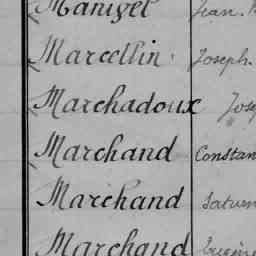 Manizel Jean
Marcellin Joseph.
Marchadoux Jose
Marchand Constan
Marchand Saturn
Marchand Eugène